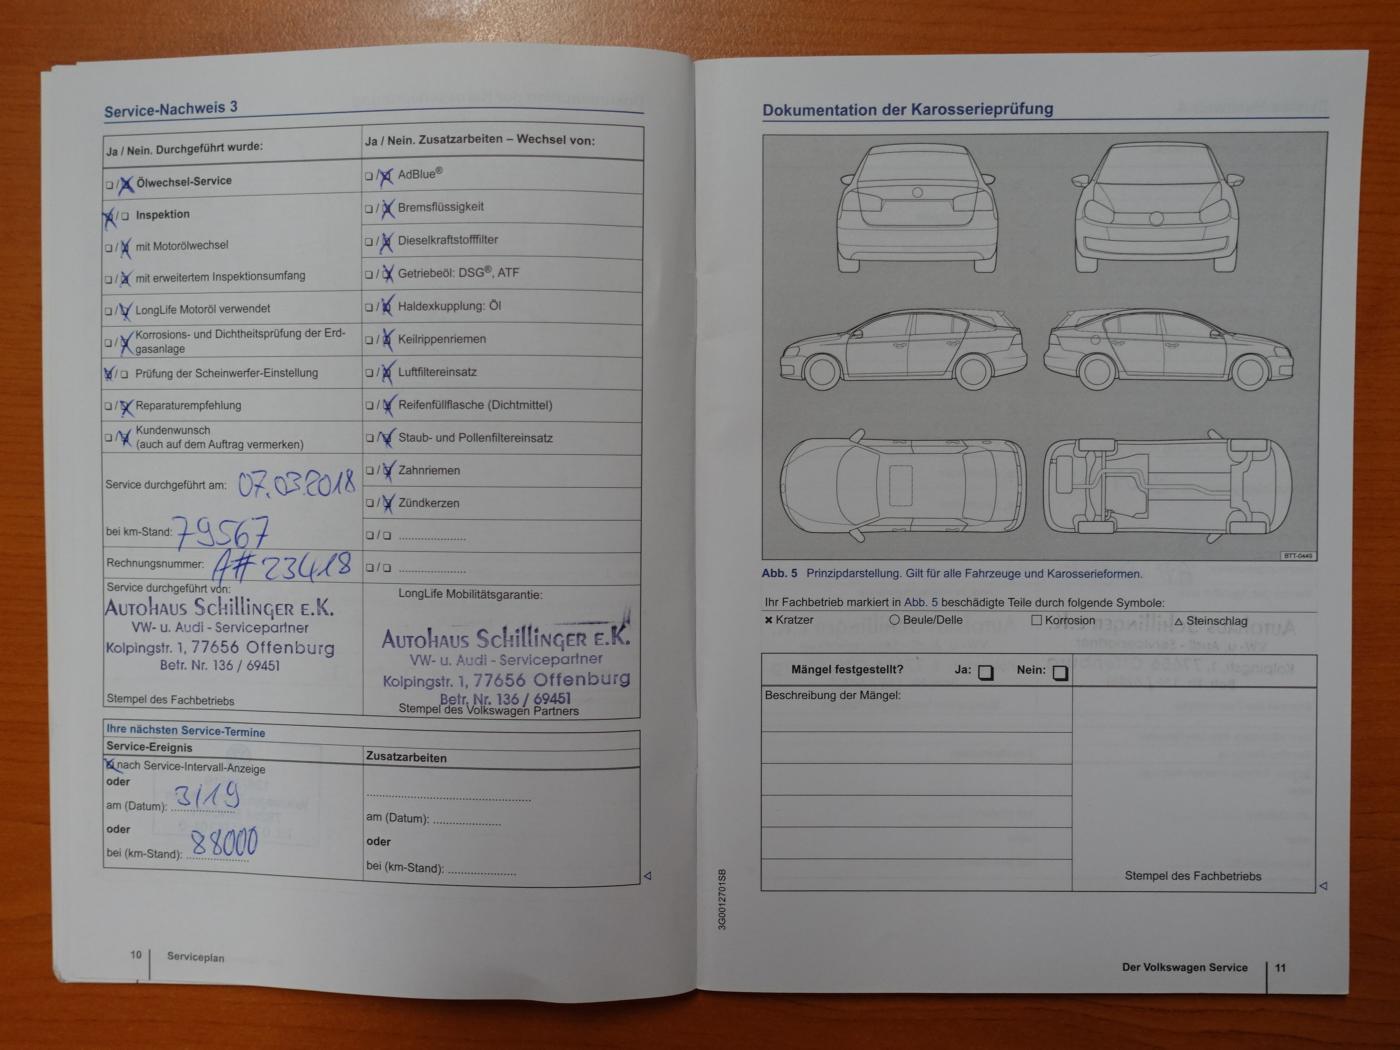 Service-Nachweis 3
Ja / Nein. Durchgeführt wurde:
❏ / ❏ Ölwechsel-Service
❏ / ❏ Inspektion
❏ / ❏ mit Motorölwechsel
❏ / ❏ mit erweitertem Inspektionsumfang
❏ / ❏ LongLife Motoröl verwendet
❏ / ❏ Korrosions- und Dichtheitsprüfung der Erd-
gasanlage
❏ / ❏ Prüfung der Scheinwerfer-Einstellung
❏ / ❏ Reparaturempfehlung
❏ / ❏ Kundenwunsch
(auch auf dem Auftrag vermerken)
Service durchgeführt am: 07.03.2018
bei km-Stand: 79567
Rechnungsnummer: A#23418
Service durchgeführt von:
Autohaus Schillinger e.K.
VW- u. Audi - Servicepartner
Kolpingstr. 1, 77656 Offenburg
Betr. Nr. 136 / 69451
Stempel des Fachbetriebs
Ja / Nein. Zusatzarbeiten – Wechsel von:
❏ / ❏ AdBlue®
❏ / ❏ Bremsflüssigkeit
❏ / ❏ Dieselkraftstofffilter
❏ / ❏ Getriebeöl: DSG®, ATF
❏ / ❏ Haldexkupplung: Öl
❏ / ❏ Keilrippenriemen
❏ / ❏ Luftfiltereinsatz
❏ / ❏ Reifenfüllflasche (Dichtmittel)
❏ / ❏ Staub- und Pollenfiltereinsatz
❏ / ❏ Zahnriemen
❏ / ❏ Zündkerzen
❏ / ❏ ....................
❏ / ❏ ....................
LongLife Mobilitätsgarantie:
Autohaus Schillinger e.K.
VW- u. Audi - Servicepartner
Kolpingstr. 1, 77656 Offenburg
Betr. Nr. 136 / 69451
Stempel des Volkswagen Partners
Ihre nächsten Service-Termine
Service-Ereignis
❏ nach Service-Intervall-Anzeige
oder
am (Datum): 3/19
oder
bei (km-Stand): 88000
Zusatzarbeiten
am (Datum): ....................
oder
bei (km-Stand): ....................
10 Serviceplan
Dokumentation der Karosserieprüfung
BTT-0449
Abb. 5 Prinzipdarstellung. Gilt für alle Fahrzeuge und Karosserieformen.
Ihr Fachbetrieb markiert in Abb. 5 beschädigte Teile durch folgende Symbole:
✖ Kratzer ◯ Beule/Delle □ Korrosion △ Steinschlag
Mängel festgestellt? Ja: ❏ Nein: ❏
Beschreibung der Mängel:
Stempel des Fachbetriebs
3G0012701SB
Der Volkswagen Service 11